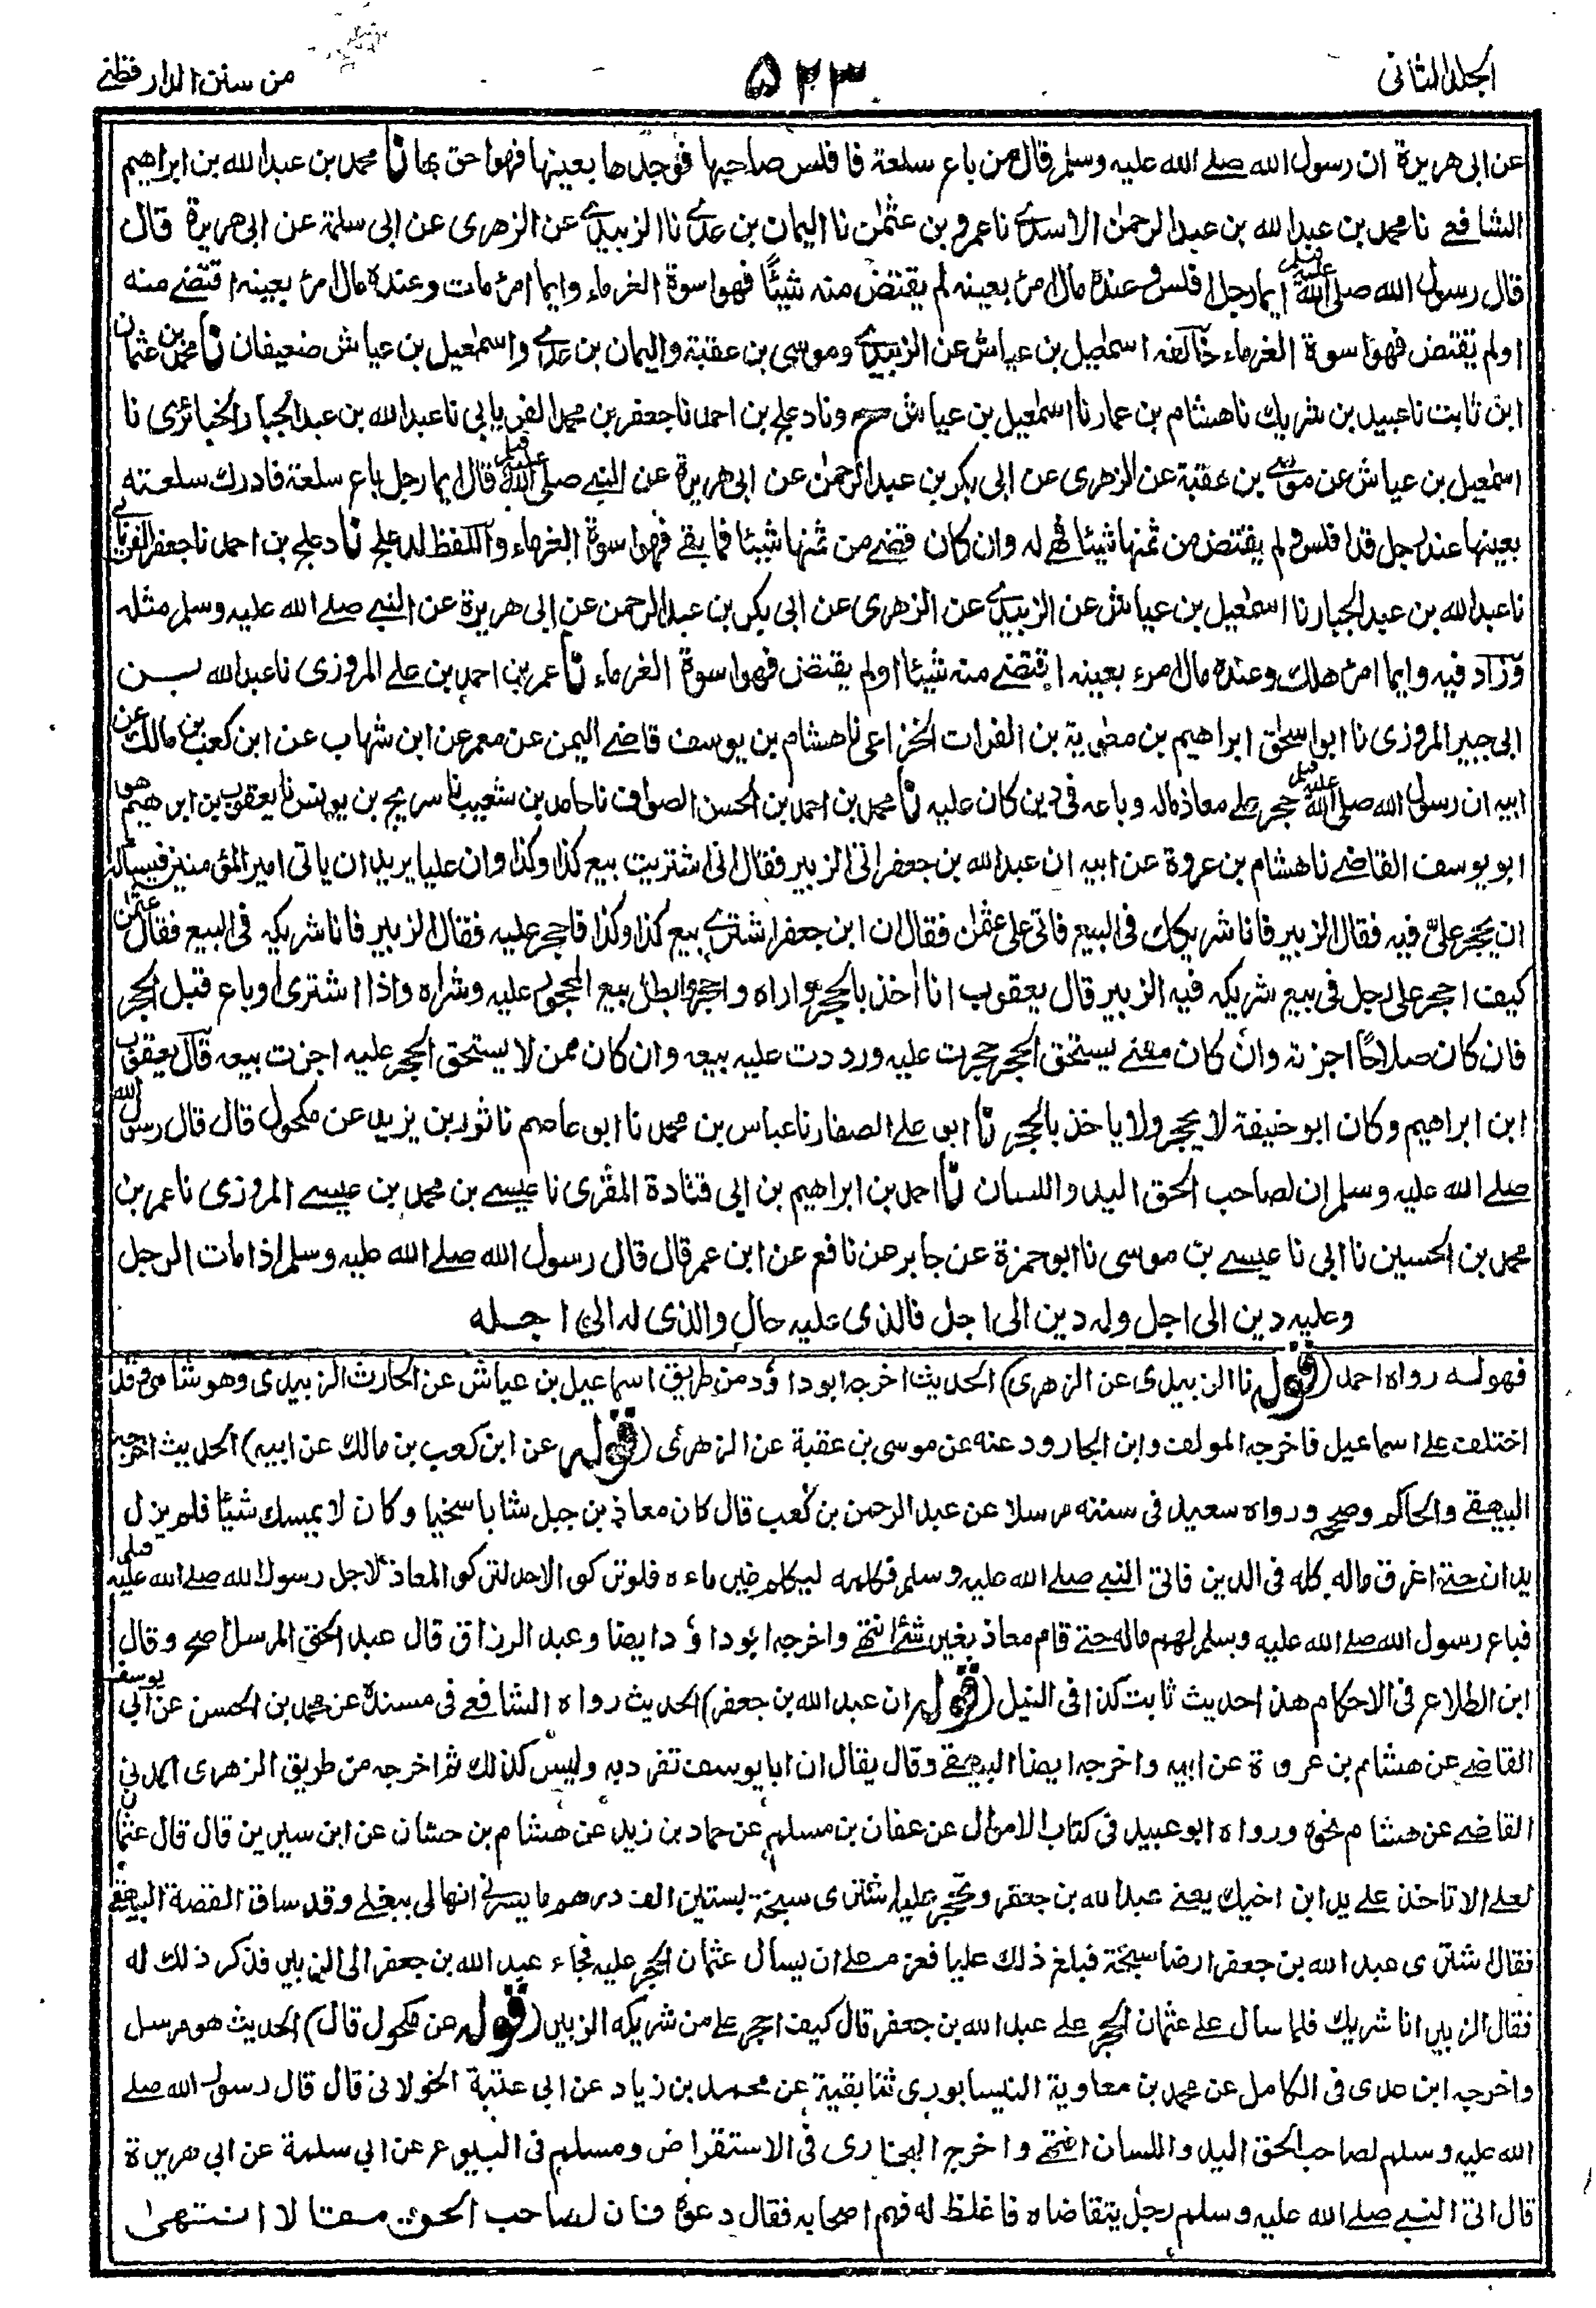 الجلد الثانی
۵۲۳
من سنن الدارقطنے
عن ابی هریرة ان رسول الله صلے الله علیه وسلم قال من باع سلعة فافلس صاحبها فوجدها بعینها فهو احق بها نا محمد بن عبد الله بن ابراهیم
الشافعے نا محمد بن عبد الله بن عبد الرحمٰن الاسدے نا عمرو بن عثمٰن نا الیمان بن عدے نا الزبیدے عن الزهری عن ابی سلمة عن ابی هریرة قال
قال رسول الله صلی الله علیه وسلم ایما رجل افلس وعنده مال امرئ بعینه لم یقتض منه شیئًا فهو اسوة الغرماء وایما امرئ مات وعنده مال امرئ بعینه اقتضے منه
او لم یقتض فهو اسوة الغرماء خالفه اسمٰعیل بن عیاش عن الزبیدے وموسی بن عقبة والیمان بن عدے واسمٰعیل بن عیاش ضعیفان نا محمد بن عثمان
ابن ثابت نا عبید بن شریك نا هشام بن عمار نا اسمٰعیل بن عیاش ح ونا دعلج بن احمد نا جعفر بن محمد الفریابی نا عبد الله بن عبد الجبار الخبائری نا
اسمٰعیل بن عیاش عن موسٰے بن عقبة عن الزهری عن ابی بکر بن عبد الرحمٰن عن ابی هریرة عن النبے صلی الله علیه وسلم قال ایما رجل باع سلعة فادرك سلعته
بعینها عند رجل قد افلس ولم یقتض من ثمنها شیئا فهے له وان کان قضے من ثمنها شیئا فما بقے فهو اسوة الغرماء واللفظ لدعلج نا دعلج بن احمد نا جعفر الفریابے
نا عبد الله بن عبد الجبار نا اسمٰعیل بن عیاش عن الزبیدے عن الزهری عن ابی بکر بن عبد الرحمن عن ابی هریرة عن النبے صلے الله علیه وسلم مثله
وزاد فیه وایما امرئ هلك وعنده مال امرء بعینه اقتضے منه شیئا او لم یقتض فهو اسوة الغرماء نا عمر بن احمد بن علے المروزی نا عبد الله بن
ابی جبیر المروزی نا ابو اسحٰق ابراهیم بن معٰویة بن الفرات الخزاعی نا هشام بن یوسف قاضے الیمن عن معمر عن ابن شهاب عن ابن کعب بن مالك عن
ابیه ان رسول الله صلی الله علیه وسلم حجر علے معاذ ماله وباعه فی دین کان علیه نا محمد بن احمد بن الحسن الصواف نا حامد بن شعیب نا سریج بن یونس نا یعقوب بن ابرهیم هو
ابو یوسف القاضے نا هشام بن عروة عن ابیه ان عبد الله بن جعفر اتی الزبیر فقال انی اشتریت بیع کذا وکذا وان علیا یرید ان یاتی امیر المؤمنین فیساله
ان یحجر علیّ فیه فقال الزبیر فانا شریکك فی البیع فاتی علی عثمٰن فقال ان ابن جعفر اشترے بیع کذا وکذا فاحجر علیه فقال الزبیر فانا شریکه فی البیع فقال عثمٰن
کیف احجر علی رجل فی بیع شریکه فیه الزبیر قال یعقوب انا اٰخذ بالحجر واراه واحجر وابطل بیع المحجور علیه وشراه واذا اشتری او باع قبل الحجر
فان کان صلاحًا اجزته وان کان ممنے یستحق الحجر حجرت علیه ورددت علیه بیعه وان کان ممن لا یستحق الحجر علیه اجزت بیعه قال یعقوب
ابن ابراهیم وکان ابو حنیفة لا یحجر ولا یاخذ بالحجر نا ابو علے الصفار نا عباس بن محمد نا ابو عاصم نا ثور بن یزید عن مکحول قال قال رسول الله
صلے الله علیه وسلم ان لصاحب الحق الید واللسان نا احمد بن ابراهیم بن ابی قتادة المقری نا عیسے بن محمد بن عیسے المروزی نا عمر بن
محمد بن الحسین نا ابی نا عیسے بن موسی نا ابو حمزة عن جابر عن نافع عن ابن عمر قال قال رسول الله صلے الله علیه وسلم اذا مات الرجل
وعلیه دین الی اجل وله دین الی اجل فالذی علیه حال والذی له الی اجله
فهو له رواه احمد (قوله نا الزبیدی عن الزهری) الحدیث اخرجه ابو داؤد من طریق اسماعیل بن عیاش عن الحارث الزبیدی وهو شامی وقد
اختلف علے اسماعیل فاخرجه المولف وابن الجارود عنه عن موسی بن عقبة عن الزهری (قوله عن ابن کعب بن مالك عن ابیه) الحدیث اخرجه
البیهقے والحاکم وصححه ورواه سعید فی سننه مرسلا عن عبد الرحمن بن کعب قال کان معاذ بن جبل شابا سخیا وکان لا یمسك شیئا فلم یزل
یدان حتے اغرق ماله کله فی الدین فاتی النبے صلے الله علیه وسلم فکلمه لیکلم غرماءه فلو ترکوا لاحد لترکوا لمعاذ لاجل رسول الله صلے الله علیه وسلم
فباع رسول الله صلے الله علیه وسلم لهم ماله حتے قام معاذ بغیر شئ انتهے واخرجه ابو داؤد ایضا وعبد الرزاق قال عبد الحق المرسل اصح وقال
ابن الطلاع فی الاحکام هذا حدیث ثابت کذا فی النیل (قوله ان عبد الله بن جعفر) الحدیث رواه الشافعے فی مسنده عن محمد بن الحسن عن ابی یوسف
القاضے عن هشام بن عروة عن ابیه واخرجه ایضا البیهقے وقال یقال ان ابا یوسف تفرد به ولیس کذلك ثم اخرجه من طریق الزهری المدنی
القاضے عن هشام نحوه ورواه ابو عبید فی کتاب الاموال عن عفان بن مسلم عن حماد بن زید عن هشام بن حسان عن ابن سیرین قال قال عثمان
لعلے الا تاخذ علے ید ابن اخیك یعنے عبد الله بن جعفر وتحجر علیه اشتری سبخة بستین الف درهم ما یسرنے انها لی ببغلے وقد ساق القصة البیهقے
فقال اشتری عبد الله بن جعفر ارضا سبخة فبلغ ذلك علیا فعزم علے ان یسال عثمان الحجر علیه فجاء عبد الله بن جعفر الی الزبیر فذکر ذلك له
فقال الزبیر انا شریك فلما سال علے عثمان الحجر علے عبد الله بن جعفر قال کیف احجر علے من شریکه الزبیر (قوله عن مکحول قال) الحدیث هو مرسل
واخرجه ابن عدی فی الکامل عن محمد بن معاویة النیسابوری ثنا بقیة عن محمد بن زیاد عن ابی عتبة الخولانی قال قال رسول الله صلے
الله علیه وسلم لصاحب الحق الید واللسان انتهے واخرج البخاری فی الاستقراض ومسلم فی البیوع عن ابی سلمة عن ابی هریرة
قال اتی النبے صلے الله علیه وسلم رجل یتقاضاه فاغلظ له فهم اصحابه فقال دعوه فان لصاحب الحق مقالا انتهیٰ